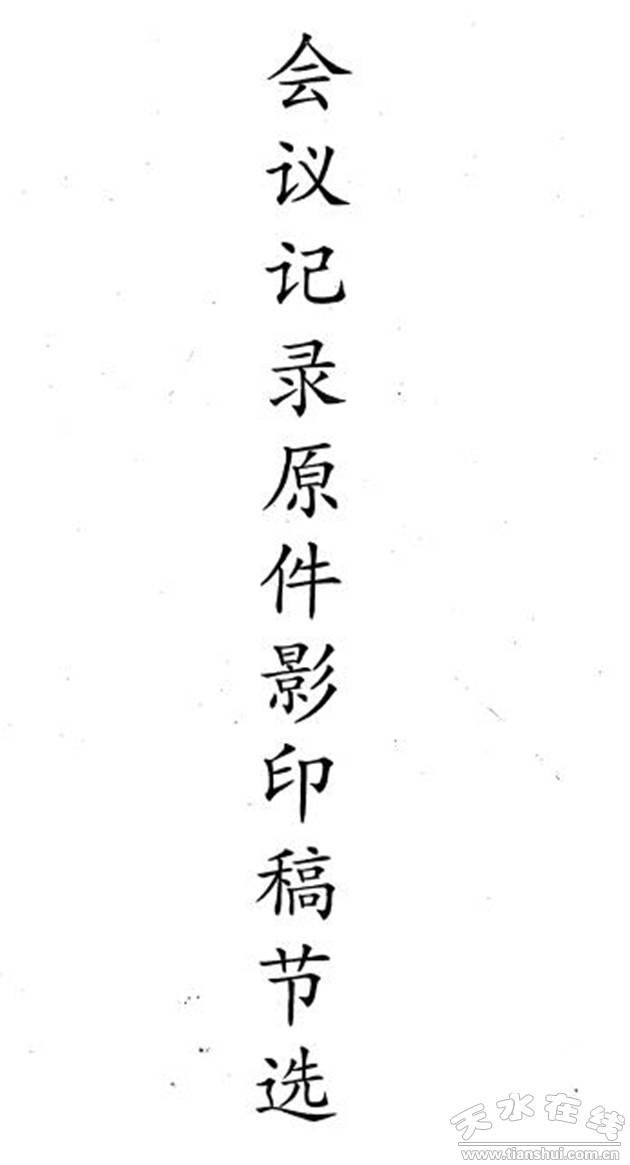 会议记录原件影印稿节选
天水在线
www.tianshui.com.cn